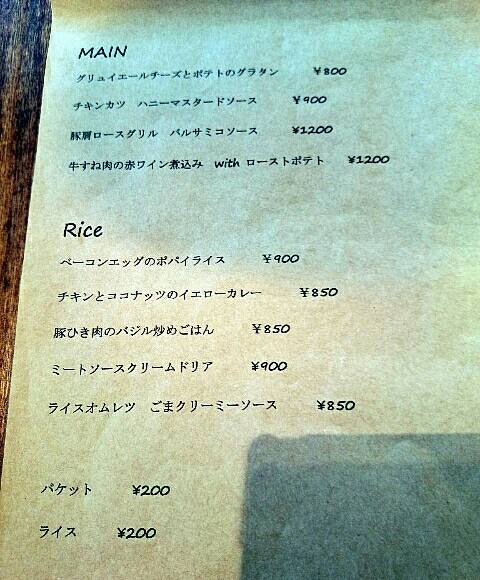 MAIN
グリュイエールチーズとポテトのグラタン ¥800
チキンカツ ハニーマスタードソース ¥900
豚肩ロースグリル バルサミコソース ¥1200
牛すね肉の赤ワイン煮込み with ローストポテト ¥1200
Rice
ベーコンエッグのポパイライス ¥900
チキンとココナッツのイエローカレー ¥850
豚ひき肉のバジル炒めごはん ¥850
ミートソースクリームドリア ¥900
ライスオムレツ ごまクリーミーソース ¥850
バケット ¥200
ライス ¥200